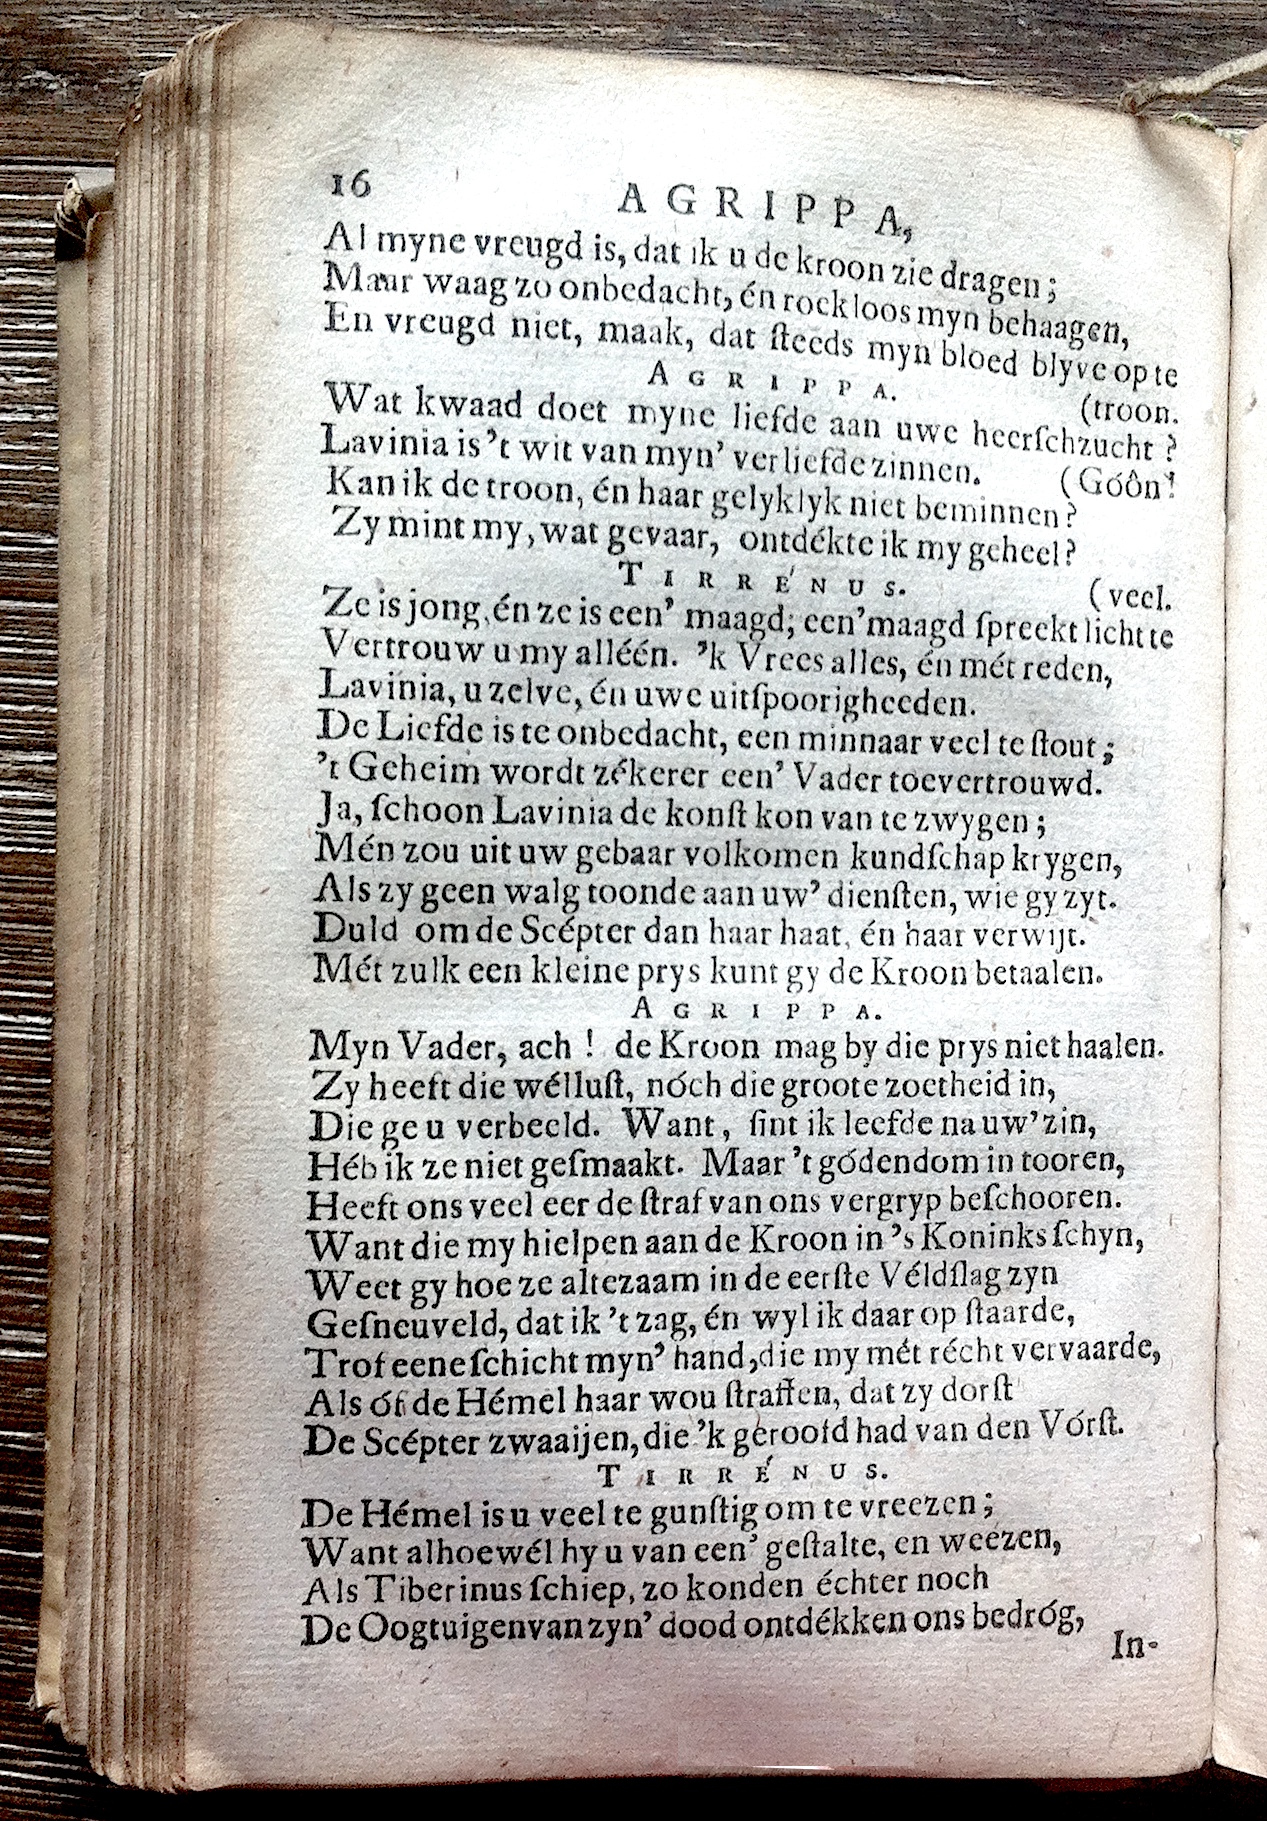 16 AGRIPPA,
Al myne vreugd is, dat ik u de kroon zie dragen;
Maar waag zo onbedacht, én roekloos myn behaagen,
En vreugd niet, maak, dat ſteeds myn bloed blyve op te
AGRIPPA. (troon.
Wat kwaad doet myne liefde aan uwe heerſchzucht?
Lavinia is 't wit van myn' verliefde zinnen. (Góôn!
Kan ik de troon, én haar gelyklyk niet beminnen?
Zy mint my, wat gevaar, ontdékte ik my geheel?
TIRRÉNUS. (veel.
Ze is jong, én ze is een' maagd; een' maagd ſpreekt licht te
Vertrouw u my alléén. 'k Vrees alles, én mét reden,
Lavinia, u zelve, én uwe uitſpoorigheeden.
De Liefde is te onbedacht, een minnaar veel te ſtout;
't Geheim wordt zékerer een' Vader toevertrouwd.
Ja, ſchoon Lavinia de konſt kon van te zwygen;
Mén zou uit uw gebaar volkomen kundſchap krygen,
Als zy geen walg toonde aan uw' dienſten, wie gy zyt.
Duld om de Scépter dan haar haat, én haar verwijt.
Mét zulk een kleine prys kunt gy de Kroon betaalen.
AGRIPPA.
Myn Vader, ach! de Kroon mag by die prys niet haalen.
Zy heeft die wélluſt, nóch die groote zoetheid in,
Die ge u verbeeld. Want, ſint ik leefde na uw' zin,
Héb ik ze niet geſmaakt. Maar 't gódendom in tooren,
Heeft ons veel eer de ſtraf van ons vergryp beſchooren.
Want die my hielpen aan de Kroon in 's Koninks ſchyn,
Weet gy hoe ze altezaam in de eerſte Véldſlag zyn
Geſneuveld, dat ik 't zag, én wyl ik daar op ſtaarde,
Trof eene ſchicht myn' hand, die my mét récht vervaarde,
Als óf de Hémel haar wou ſtraffen, dat zy dorſt
De Scépter zwaaijen, die 'k geroofd had van den Vórſt.
TIRRÉNUS.
De Hémel is u veel te gunſtig om te vreezen;
Want alhoewél hy u van een' geſtalte, en weezen,
Als Tiberinus ſchiep, zo konden échter noch
De Oogtuigen van zyn' dood ontdékken ons bedróg,
In-